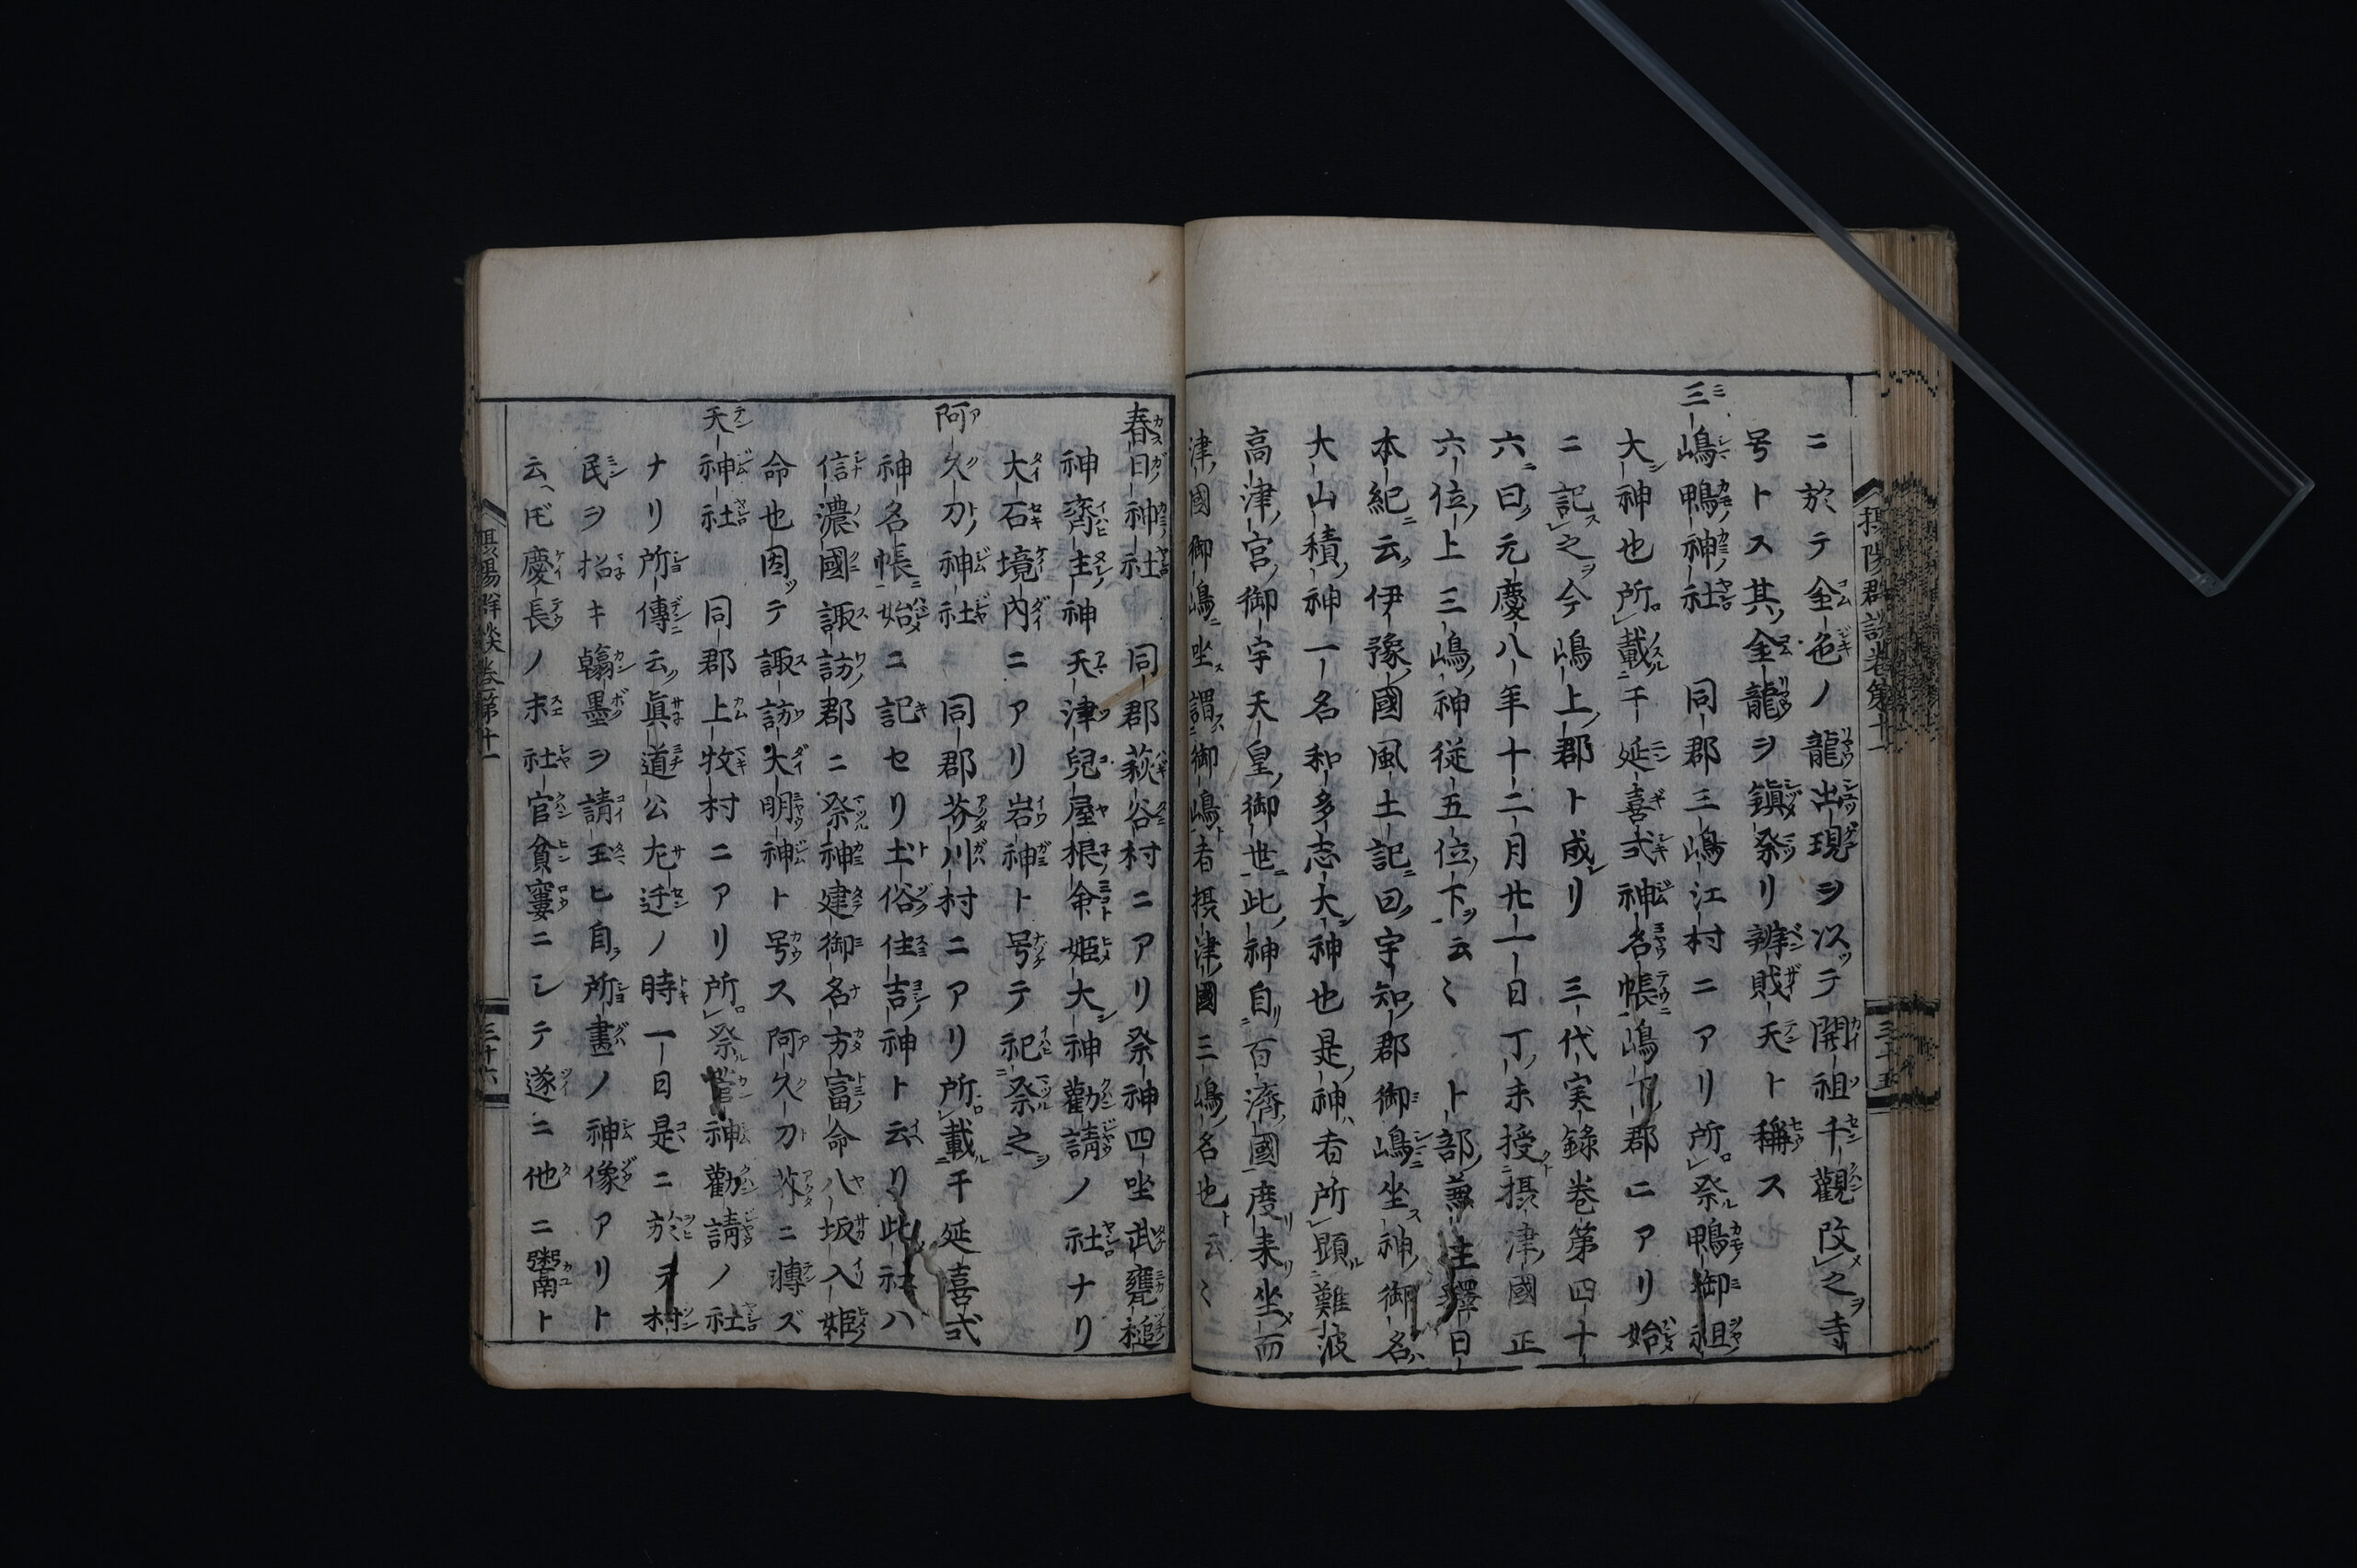 摂陽群談巻第十一
三十五
ニ於テ金色ノ龍出現ヲ以テ開祖千観改之寺
号トス其金龍ヲ鎮祭リ辨財天ト稱ス
三嶋鴨神社 同郡三嶋江村ニアリ所祭鴨御祖
大神也所載于延喜式神名帳嶋下郡ニアリ始
ニ記之今嶋上郡ト成リ 三代実録巻第四十
六曰元慶八年十二月廿一日丁未授摂津國正
六位上三嶋神従五位下云〻 卜部兼 釋曰
本紀云伊豫國風土記曰宇知郡御嶋坐神御名
大山積神一名和多志大神也是神者所顕難波
高津宮御宇天皇御世此神自百濟國度来坐而
津國御嶋坐謂御嶋者摂津國三嶋名也云〻
春日神社 同郡萩谷村ニアリ祭神四坐武甕槌
神齋主神天津兒屋根命姫大神勸請ノ社ナリ
大石境内ニアリ岩神ト号テ祀祭之
阿久刀神社 同郡芥川村ニアリ所載于延喜式
神名帳始ニ記セリ土俗住吉神ト云リ此社ハ
信濃國諏訪郡ニ祭神建御名方富命八坂入姫
命也因テ諏訪大明神ト号ス阿久刀芥ニ轉ズ
天神社 同郡上牧村ニアリ所祭菅神勸請ノ社
ナリ所傳云眞道公尢迁ノ時一日是ニ於テ村
民ヲ招キ翰墨ヲ請玉ヒ自所畫ノ神像アリト
云、ドモ慶長ノ末社官貧窶ニシテ遂ニ他ニ粥ト
摂陽群談巻第十一
三十六